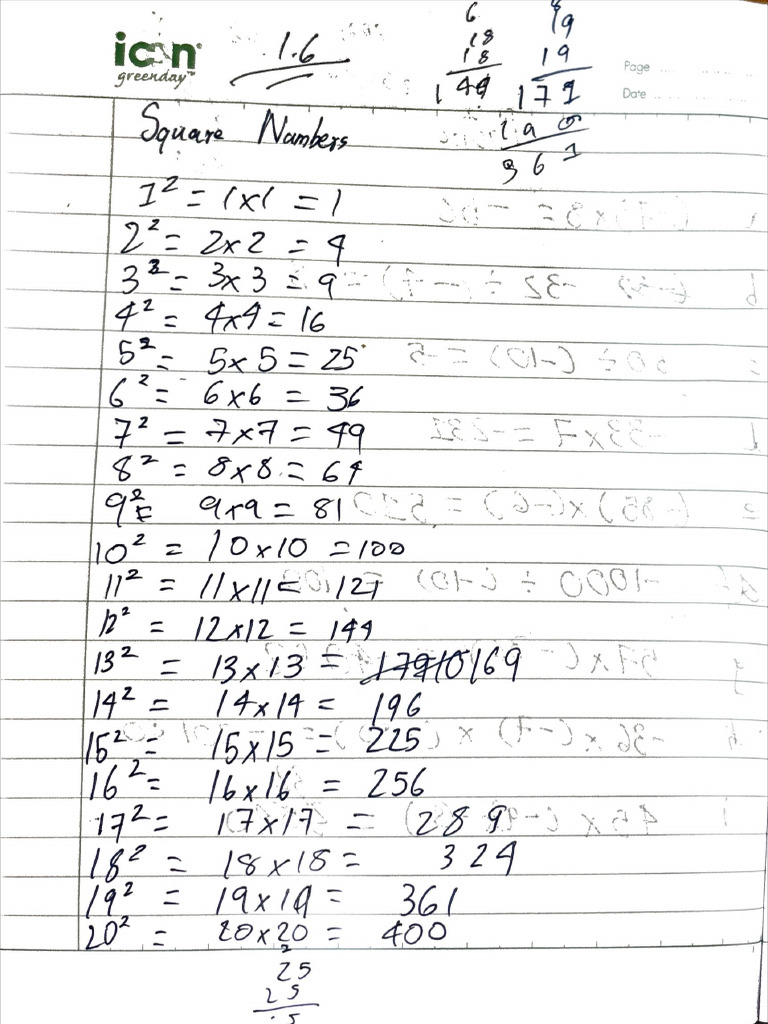 icon
greenday
1.6
Page
Date
6
18
18
1 44
8
19
19
171
1 9 0
3 6 1
Square Numbers
1² = 1x1 = 1
2² = 2x2 = 4
3² = 3x3 = 9
4² = 4x4 = 16
5² = 5x5 = 25
6² = 6x6 = 36
7² = 7x7 = 49
8² = 8x8 = 64
9² = 9x9 = 81
10² = 10x10 = 100
11² = 11x11 = 121
12² = 12x12 = 144
13² = 13x13 = 169
14² = 14x14 = 196
15² = 15x15 = 225
16² = 16x16 = 256
17² = 17x17 = 289
18² = 18x18 = 324
19² = 19x19 = 361
20² = 20x20 = 400
2
25
25